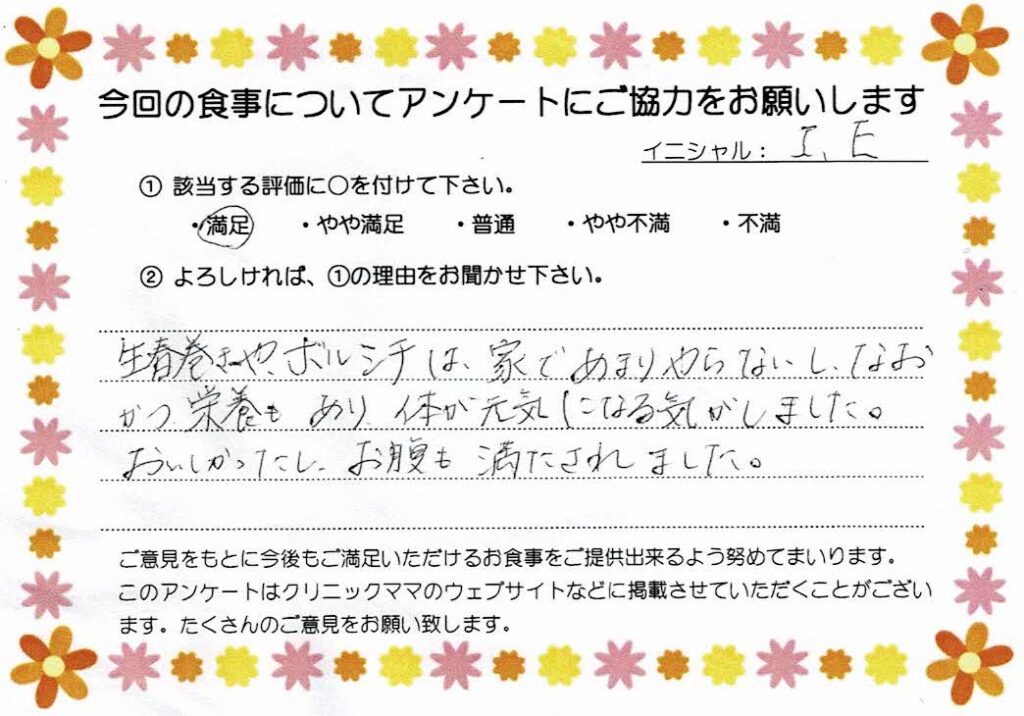 今回の食事についてアンケートにご協力をお願いします
イニシャル： I、E
① 該当する評価に○を付けて下さい。
・満足 ・やや満足 ・普通 ・やや不満 ・不満
② よろしければ、①の理由をお聞かせ下さい。
生春巻きや、ボルシチは、家であまりやらないし、なお
かつ、栄養もあり、体が元気になる気がしました。
おいしかったし、お腹も満たされました。
ご意見をもとに今後もご満足いただけるお食事をご提供出来るよう努めてまいります。
このアンケートはクリニックママのウェブサイトなどに掲載させていただくことがござい
ます。たくさんのご意見をお願い致します。